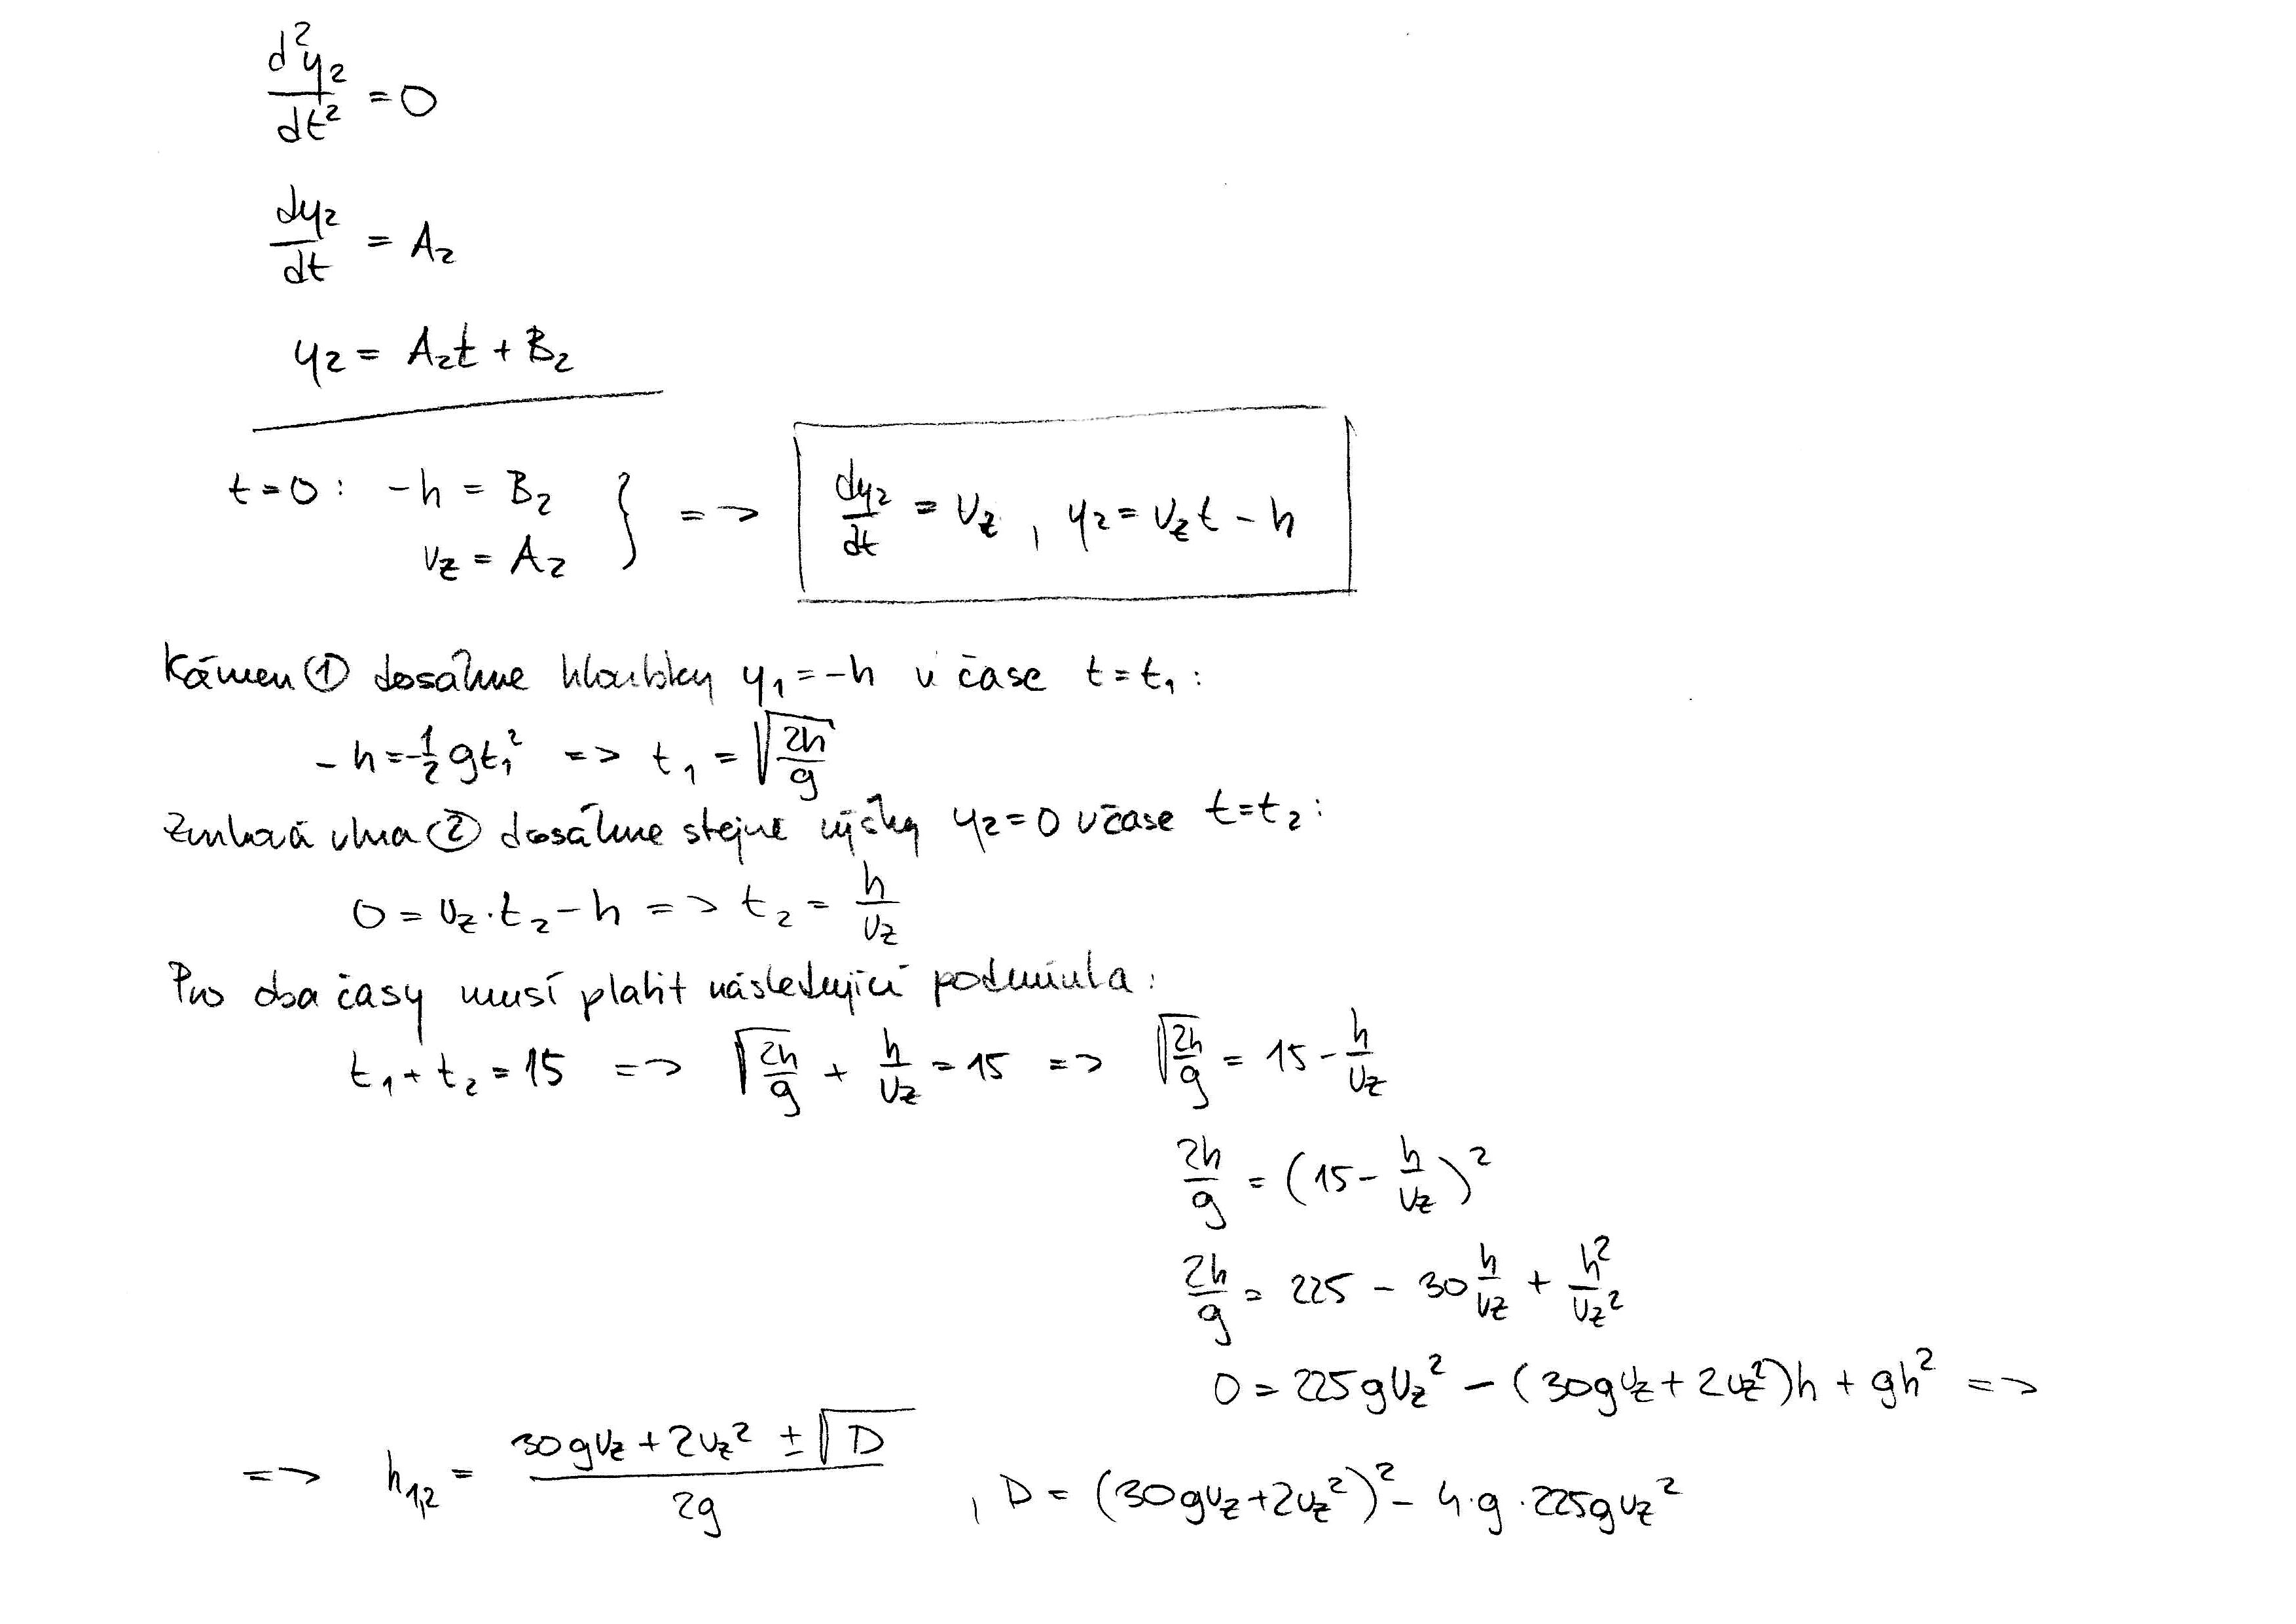 d²y₂/dt² = 0
dy₂/dt = A₂
y₂ = A₂t + B₂
t=0: -h = B₂
v_z = A₂
} => dy₂/dt = v_z, y₂ = v_z t - h
Kámen ① dosáhne hloubky y₁ = -h v čase t = t₁:
-h = -½gt₁² => t₁ = √(2h/g)
Zvuková vlna ② dosáhne stejné výšky y₂ = 0 v čase t = t₂:
0 = v_z · t₂ - h => t₂ = h/v_z
Pro oba časy musí platit následující podmínka:
t₁ + t₂ = 15 => √(2h/g) + h/v_z = 15 => √(2h/g) = 15 - h/v_z
2h/g = (15 - h/v_z)²
2h/g = 225 - 30 h/v_z + h²/v_z²
0 = 225gv_z² - (30gv_z + 2v_z²)h + gh² =>
=> h₁,₂ = (30gv_z + 2v_z² ± √D)/2g , D = (30gv_z + 2v_z²)² - 4·g·225gv_z²